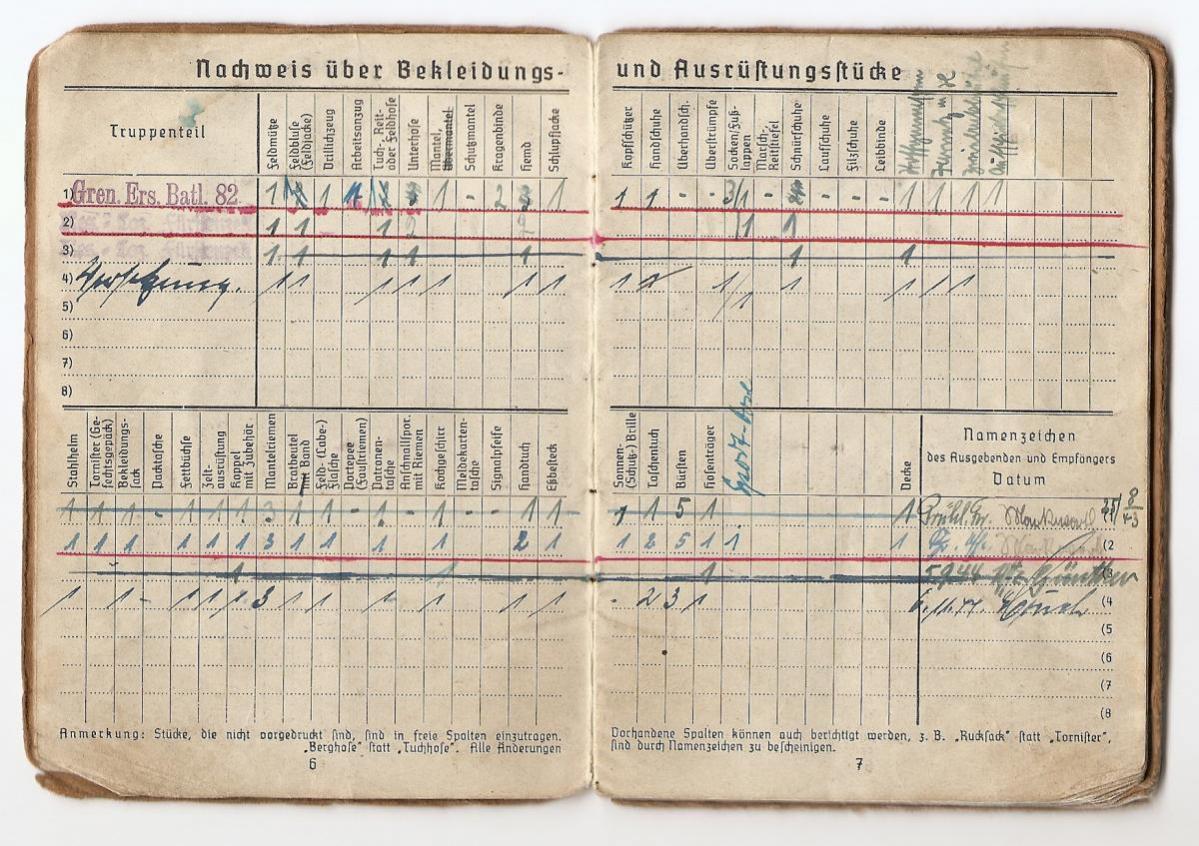 Nachweis über Bekleidungs-
Truppenteil
Feldmütze
Feldbluse (Feldjacke)
Drillichzeug
Arbeitsanzug
Tuch-, Reit- oder Feldhose
Unterhose
Mantel, Übermantel
Schutzmantel
Kragenbinde
Hemd
Schlupfjacke
1) Gren. Ers. Batl. 82. 1 1 1 - 2 1
2) 1 1 1
3) 1 1 1 1 1
4) Versetzung. 1 1 1 1 1 1 1
5)
6)
7)
8)
Stahlhelm
Tornister (Gefechtsgepäck)
Bekleidungs-sack
Packtasche
Fettbüchse
Zelt-ausrüstung
Koppel mit Zubehör
Mantelriemen
Brotbeutel mit Band
Feld- (Labe-) flasche
Portepee (Faustriemen)
Patronen-tasche
Anschnallspor. mit Riemen
Kochgeschirr
Meldekarten-tasche
Signalpfeife
Handtuch
Eßbesteck
1 1 1 - 1 1 1 3 1 1 - 1 - 1 - - 1 1
1 1 1 1 1 1 3 1 1 1 1 2 1
1 1
1 1 - 1 1 1 3 1 1 1 1 1 1
Anmerkung: Stücke, die nicht vorgedruckt sind, sind in freie Spalten einzutragen.
„Berghose“ statt „Tuchhose“. Alle Änderungen
6
und Ausrüstungsstücke
Kopfschützer
Handschuhe
Überhandsch.
Überstrümpfe
Socken/Fuß-lappen
Marsch-, Reitstiefel
Schnürschuhe
Laufschuhe
Filzschuhe
Leibbinde
1 1 - - 3/1 - - - - 1 1 1 1
1/1 1
1 1
1 1/1 1 1 1 1 1
Sonnen- (Schutz-) Brille
Taschentuch
Bürsten
Hosenträger
Sport-Hose
Decke
Namenzeichen
des Ausgebenden und Empfängers
Datum
1 1 5 1 1 25/8 43 (1
1 2 5 1 1 1 (2
1 5.9.44 Günther
- 2 3 1 6.11.44. (4
(5
(6
(7
(8
Vorhandene Spalten können auch berichtigt werden, z. B. „Rucksack“ statt „Tornister“,
sind durch Namenzeichen zu bescheinigen.
7